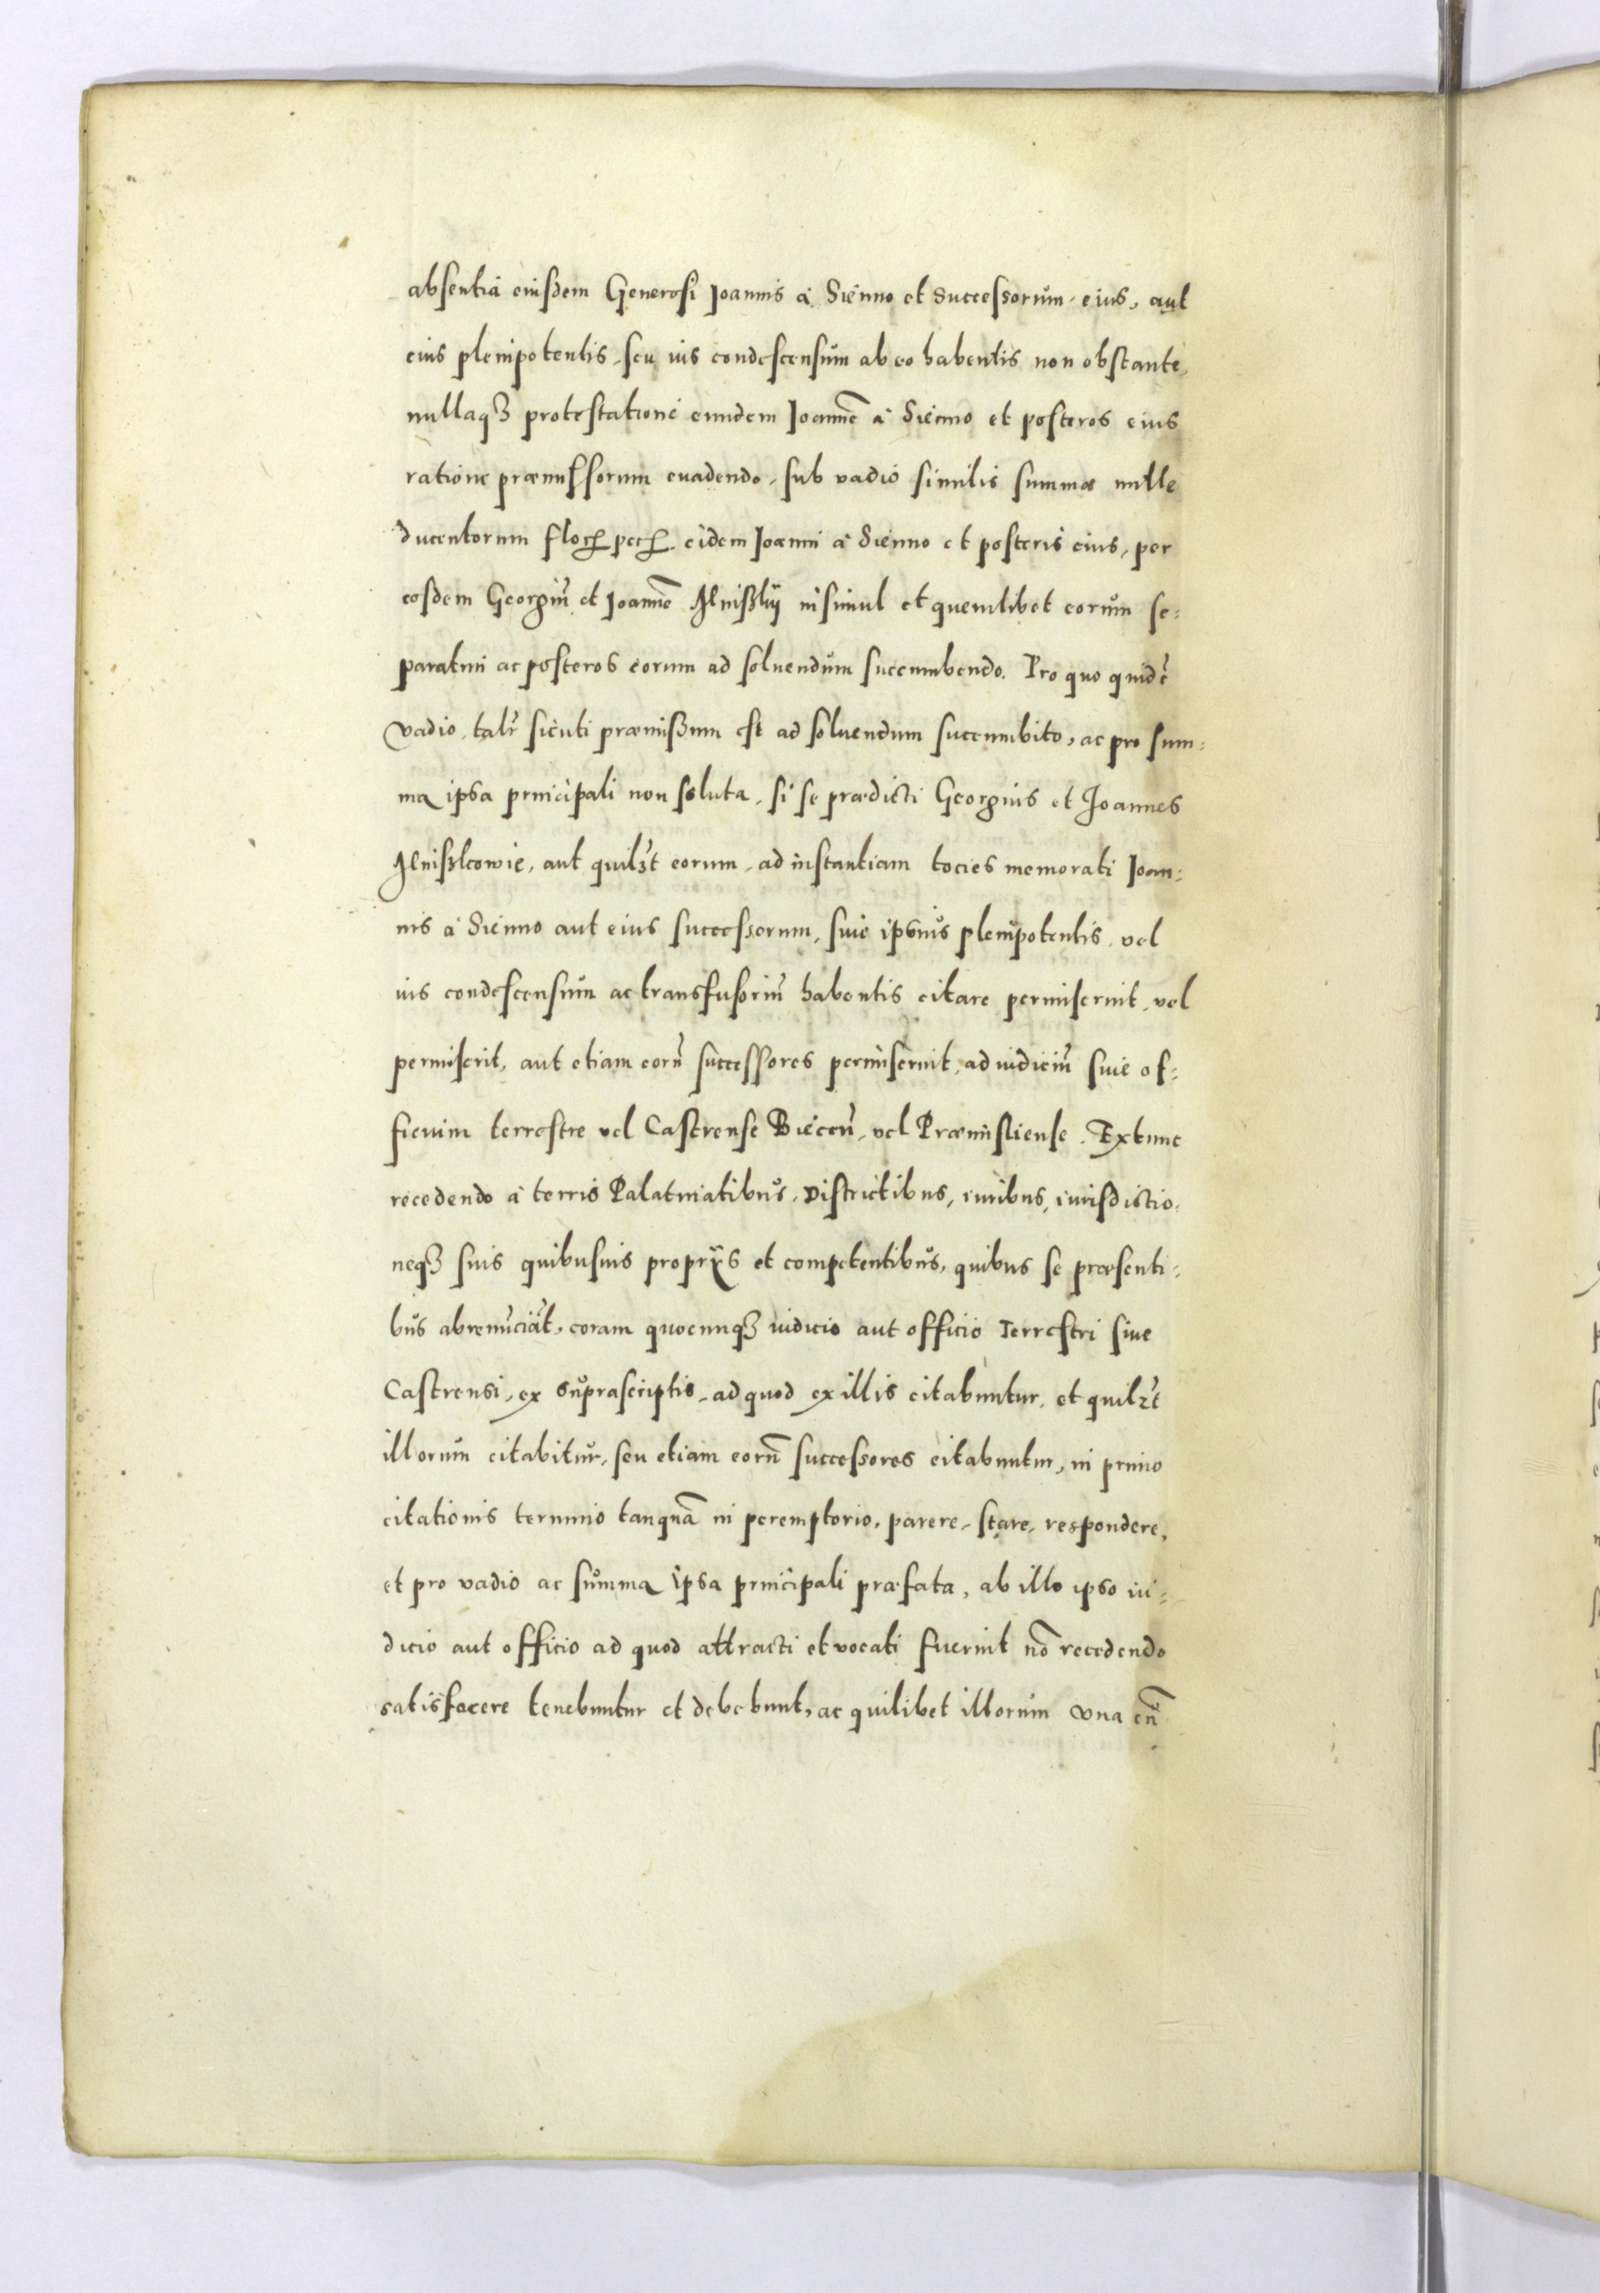 absentia eiusdem Generosi Joannis à Sienno et Successorum eius, aut
eius plenipotentis, seu ius condescensum ab eo habentis non obstante,
nullaqȝ protestatione eundem Joannē à Sienno et posteros eius
ratione præmissorum evadendo, sub vadio similis summæ mille
ducentorum eidem Joanni à Sienno et posteris eius, per
eosdem Georgiū et Joannē insimul et quemlibet eorum se-
paratim ac posteros eorum ad solvendum succumbendo. Pro quo quidē
vadio, talr̃ sicuti præmissum est ad solvendum succumbito, ac pro sum-
ma ipsa principali non soluta, si se prædicti Georgius et Joannes
aut quilȝt eorum, ad instantiam tocies memorati Joan-
nis à Sienno aut eius successorum, sive ipsius plenipotentis, vel
ius condescensum ac transfusoriū habentis citare permiserint, vel
permiserit, aut etiam eorū successores permiserint, ad iudiciū sive of-
ficium terrestre vel Castrense Biecen̄, vel Præmisliense. Extunc
recedendo à terris Palatinatibus, Districtibus, iuribus, iurisdictio-
neqȝ suis quibusuis proprijs et competentibus, quibus se præsenti-
bus abrenūciāt, coram quocunqȝ iudicio aut officio Terrestri sive
Castrensi, ex suprascriptis, ad quod ex illis citabuntur, et quilȝt
illorum citabitur, seu etiam eorū successores citabuntur, in primo
citationis termino tanquā in peremptorio, parere, stare, respondere,
et pro vadio ac summa ipsa principali præfata, ab illo ipso iu-
dicio aut officio ad quod attracti et vocati fuerint nō recedendo
satisfacere tenebuntur et debebunt, ac quilibet illorum una cū